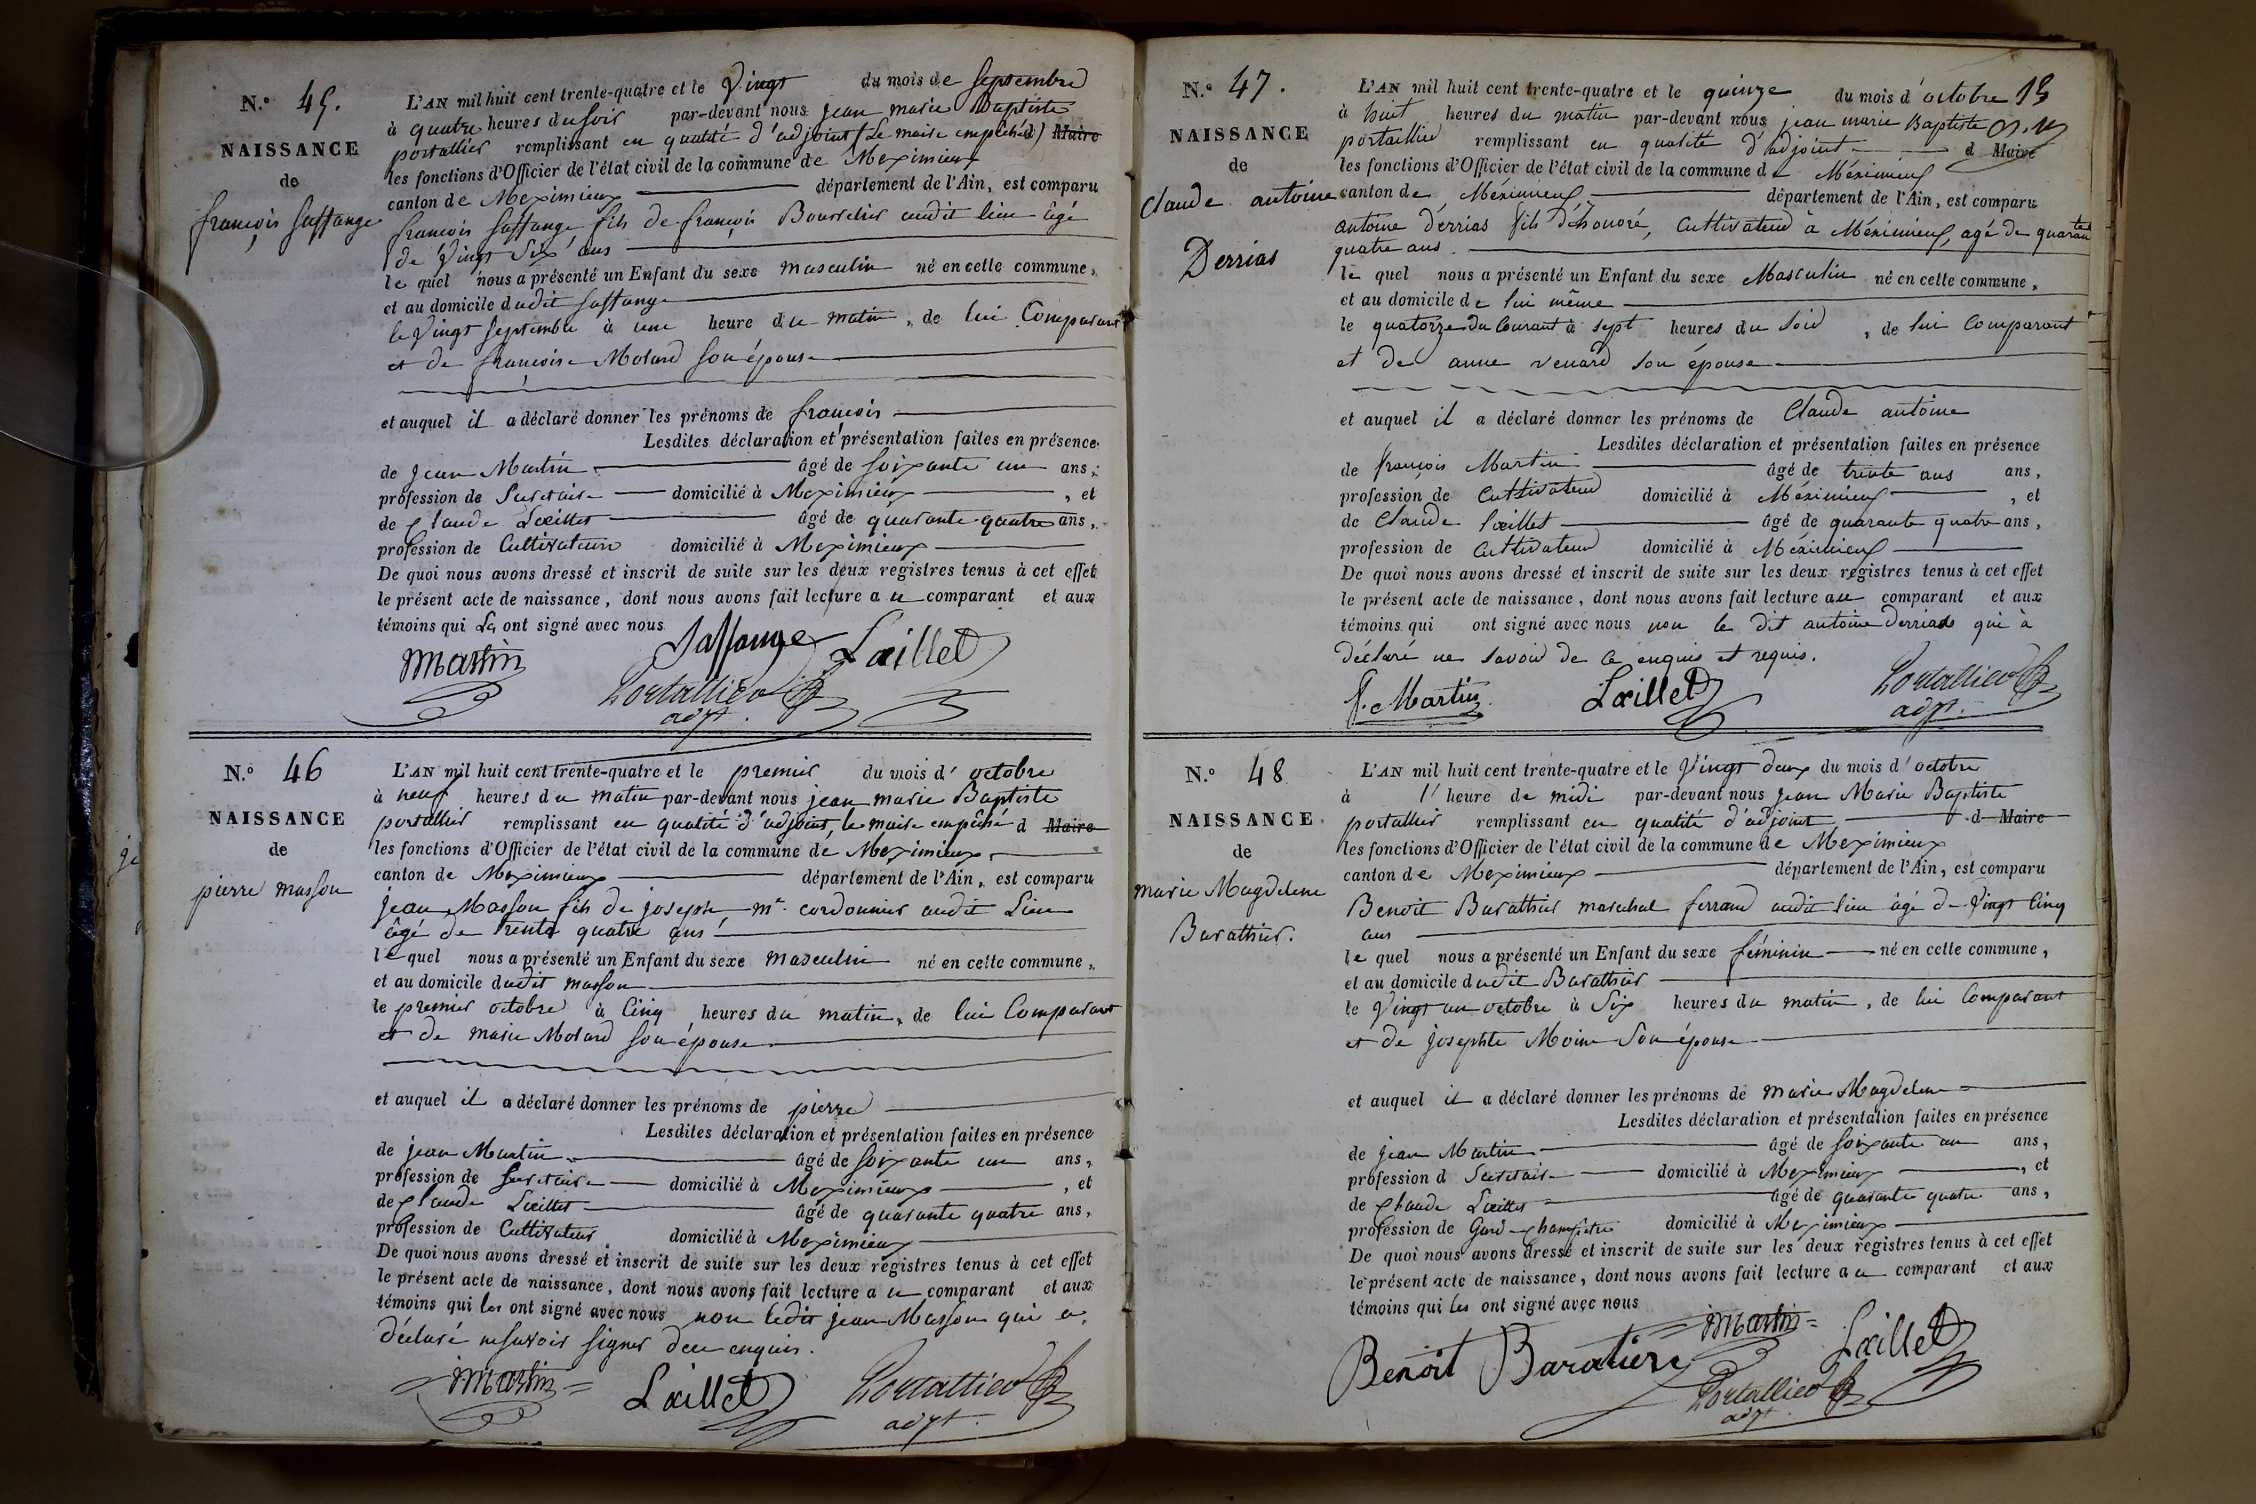 N.° 45.
NAISSANCE
de
françois saffange
L'AN mil huit cent trente-quatre et le Vingt du mois de septembre
à quatre heures du soir par-devant nous jean marie Baptiste
portallier remplissant en qualité d'adjoint (le maire empêché) Maire
les fonctions d'Officier de l'état civil de la commune de Meximieux
canton de Meximieux département de l'Ain, est comparu
françois saffange fils de françois Bourrelier audit lieu âgé
de Vingt Six ans
le quel nous a présenté un Enfant du sexe masculin né en cette commune,
et au domicile dudit saffange
le Vingt septembre à une heure du matin, de lui Comparant
et de françoise Molard son épouse
et auquel il a déclaré donner les prénoms de françois
Lesdites déclaration et présentation faites en présence
de jean Martin âgé de soixante un ans,
profession de Secretaire domicilié à Meximieux, et
de Claude Lœillet âgé de quarante quatre ans,
profession de Cultivateur domicilié à Meximieux
De quoi nous avons dressé et inscrit de suite sur les deux registres tenus à cet effet
le présent acte de naissance, dont nous avons fait lecture au comparant et aux
témoins qui Les ont signé avec nous
Martin Saffange Lœillet
Portallier
adjt.
N.° 46
NAISSANCE
de
pierre masson
L'AN mil huit cent trente-quatre et le premier du mois d'octobre
à neuf heures du matin par-devant nous jean marie Baptiste
portallier remplissant en qualité d'adjoint, le maire empêché d Maire
les fonctions d'Officier de l'état civil de la commune de Meximieux
canton de Meximieux département de l'Ain, est comparu
jean Masson fils de joseph mr. cordonnier audit Lieu
âgé de trente quatre ans
le quel nous a présenté un Enfant du sexe masculin né en cette commune,
et au domicile dudit masson
le premier octobre à Cinq heures du matin, de lui Comparant
et de marie Molard son épouse
et auquel il a déclaré donner les prénoms de pierre
Lesdites déclaration et présentation faites en présence
de jean Martin âgé de soixante un ans,
profession de Secretaire domicilié à Meximieux, et
de Claude Lœillet âgé de quarante quatre ans,
profession de Cultivateur domicilié à Meximieux
De quoi nous avons dressé et inscrit de suite sur les deux registres tenus à cet effet
le présent acte de naissance, dont nous avons fait lecture au comparant et aux
témoins qui les ont signé avec nous non ledit jean Masson qui a
déclaré ne savoir signer de ce enquis.
Martin Lœillet Portallier
adjt.
N.° 47.
NAISSANCE
de
Claude antoine
Derrias
L'AN mil huit cent trente-quatre et le quinze du mois d'octobre 15
à huit heures du matin par-devant nous jean marie Baptiste
portallier remplissant en qualité d'adjoint d Maire
les fonctions d'Officier de l'état civil de la commune de Méximieux
canton de Méximieux département de l'Ain, est comparu
antoine derrias fils d'honoré, Cultivateur à Méximieux, agé de quarante
quatre ans
le quel nous a présenté un Enfant du sexe Masculin né en cette commune,
et au domicile de lui même
le quatorze du Courant à sept heures du Soir, de lui Comparant
et de anne venard son épouse
et auquel il a déclaré donner les prénoms de Claude antoine
Lesdites déclaration et présentation faites en présence
de françois Martin âgé de trente ans ans,
profession de Cultivateur domicilié à Méximieux, et
de Claude Lœillet âgé de quarante quatre ans,
profession de Cultivateur domicilié à Méximieux
De quoi nous avons dressé et inscrit de suite sur les deux registres tenus à cet effet
le présent acte de naissance, dont nous avons fait lecture au comparant et aux
témoins qui ont signé avec nous non le dit antoine derrias qui à
déclaré ne Savoir de ce enquis et requis.
f. Martin Lœillet Portallier
adjt.
N.° 48
NAISSANCE
de
marie Magdelene
Barathier.
L'AN mil huit cent trente-quatre et le Vingt deux du mois d'octobre
à l'heure de midi par-devant nous jean Marie Baptiste
portallier remplissant en qualité d'adjoint d Maire
les fonctions d'Officier de l'état civil de la commune de Meximieux
canton de Meximieux département de l'Ain, est comparu
Benoit Barathier marechal ferrand audit lieu âgé de Vingt Cinq
ans
le quel nous a présenté un Enfant du sexe féminin né en cette commune,
et au domicile dudit Barathier
le Vingt un octobre à Six heures du matin, de lui Comparant
et de josephte Moine Son épouse
et auquel il a déclaré donner les prénoms de marie Magdelene
Lesdites déclaration et présentation faites en présence
de jean Martin âgé de soixante un ans,
profession d Secretaire domicilié à Meximieux, et
de Claude Lœillet âgé de quarante quatre ans,
profession de Garde Champetre domicilié à Meximieux
De quoi nous avons dressé et inscrit de suite sur les deux registres tenus à cet effet
le présent acte de naissance, dont nous avons fait lecture au comparant et aux
témoins qui les ont signé avec nous
Benoit Baratier Martin Lœillet
Portallier
adjt.